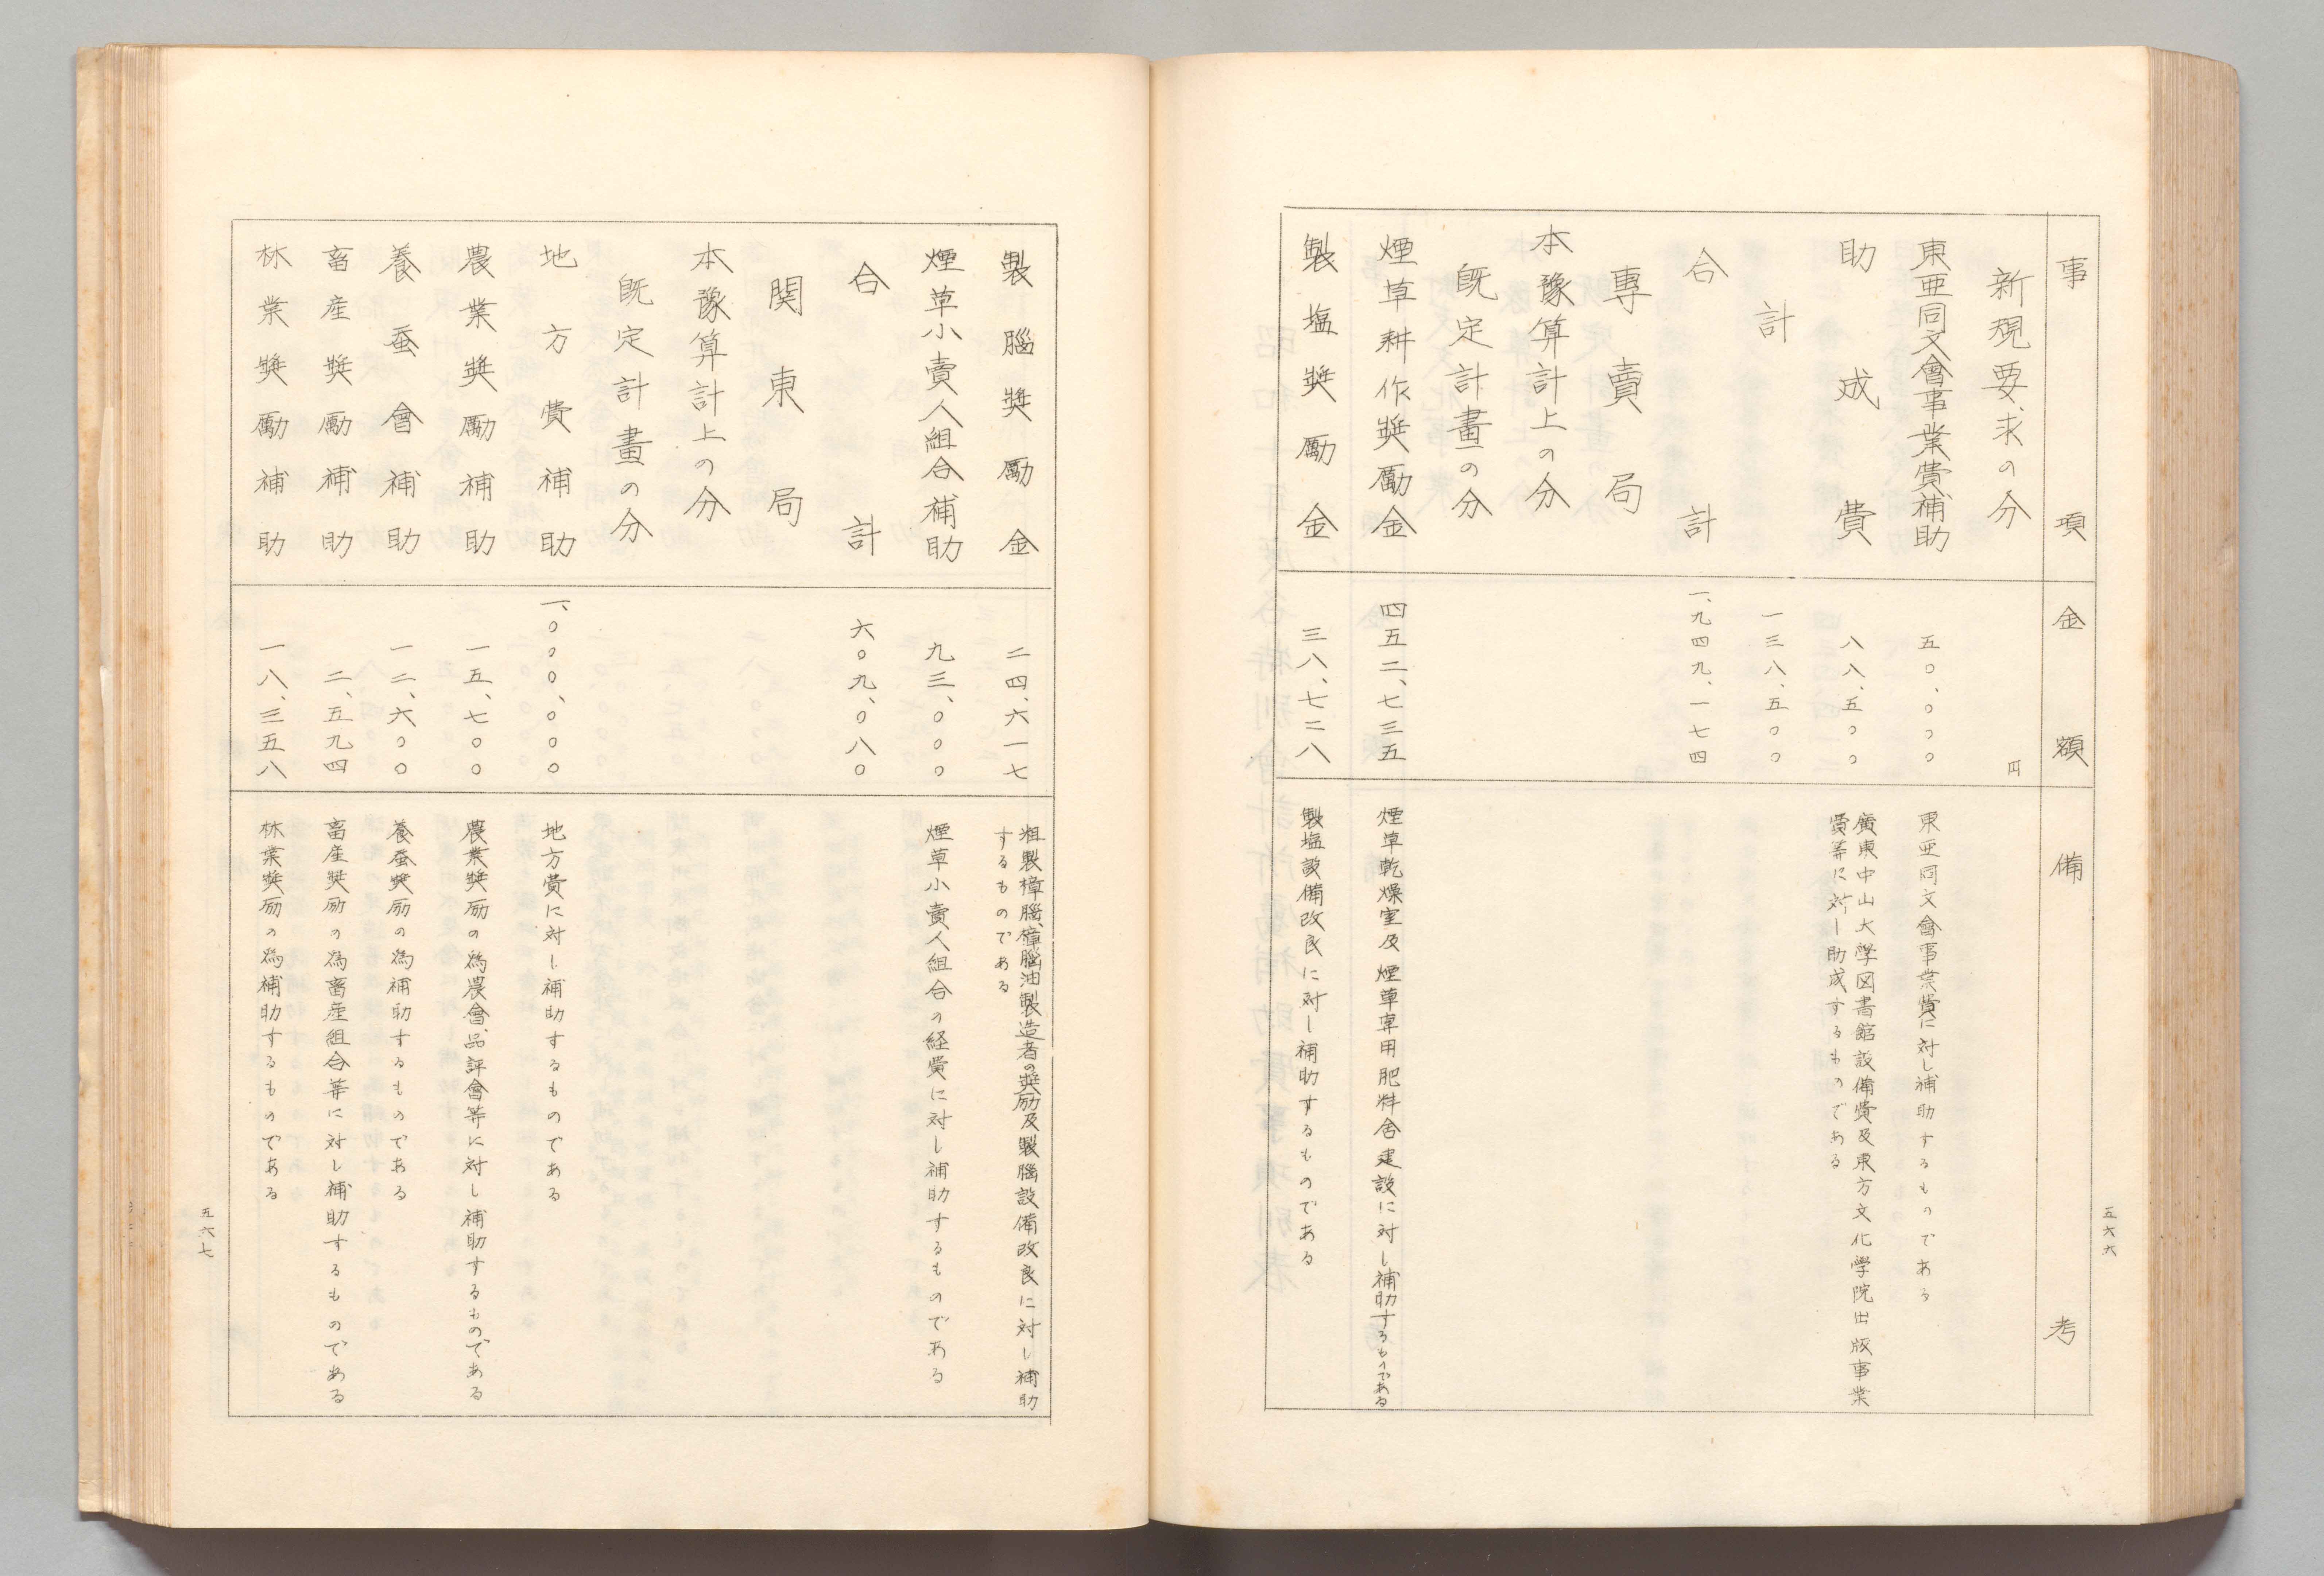 事項
金額
備考
新規要求の分
円
東亜同文會事業費補助
五〇、〇〇〇
東亜同文會事業費に対し補助するものである
助成費
八八、五〇〇
廣東中山大學図書館設備費及東方文化学院出版事業
費等に対し助成するものである
計
一三八、五〇〇
合計
一、九四九、一七四
專賣局
本豫算計上の分
既定計畫の分
煙草耕作奬勵金
四五二、七三五
煙草乾燥室及煙草専用肥料舎建設に対し補助するものである
製塩奬勵金
三八、七二八
製塩設備改良に対し補助するものである
五六六
製腦奬勵金
二四、六一七
粗製樟腦、樟腦油製造者の奬励及製腦設備改良に対し補助
するものである
煙草小賣人組合補助
九三、〇〇〇
煙草小賣人組合の経費に対し補助するものである
合計
六〇九、〇八〇
関東局
本豫算計上の分
既定計畫の分
地方費補助
一、〇〇〇、〇〇〇
地方費に対し補助するものである
農業奬勵補助
一五、七〇〇
農業奬励の為農會、品評會等に対し補助するものである
養蚕會補助
一二、六〇〇
養蚕奬励の為補助するものである
畜産奬勵補助
二、五九四
畜産奬励の為畜産組合等に対し補助するものである
林業奬勵補助
一八、三五八
林業奬励の為補助するものである
五六七